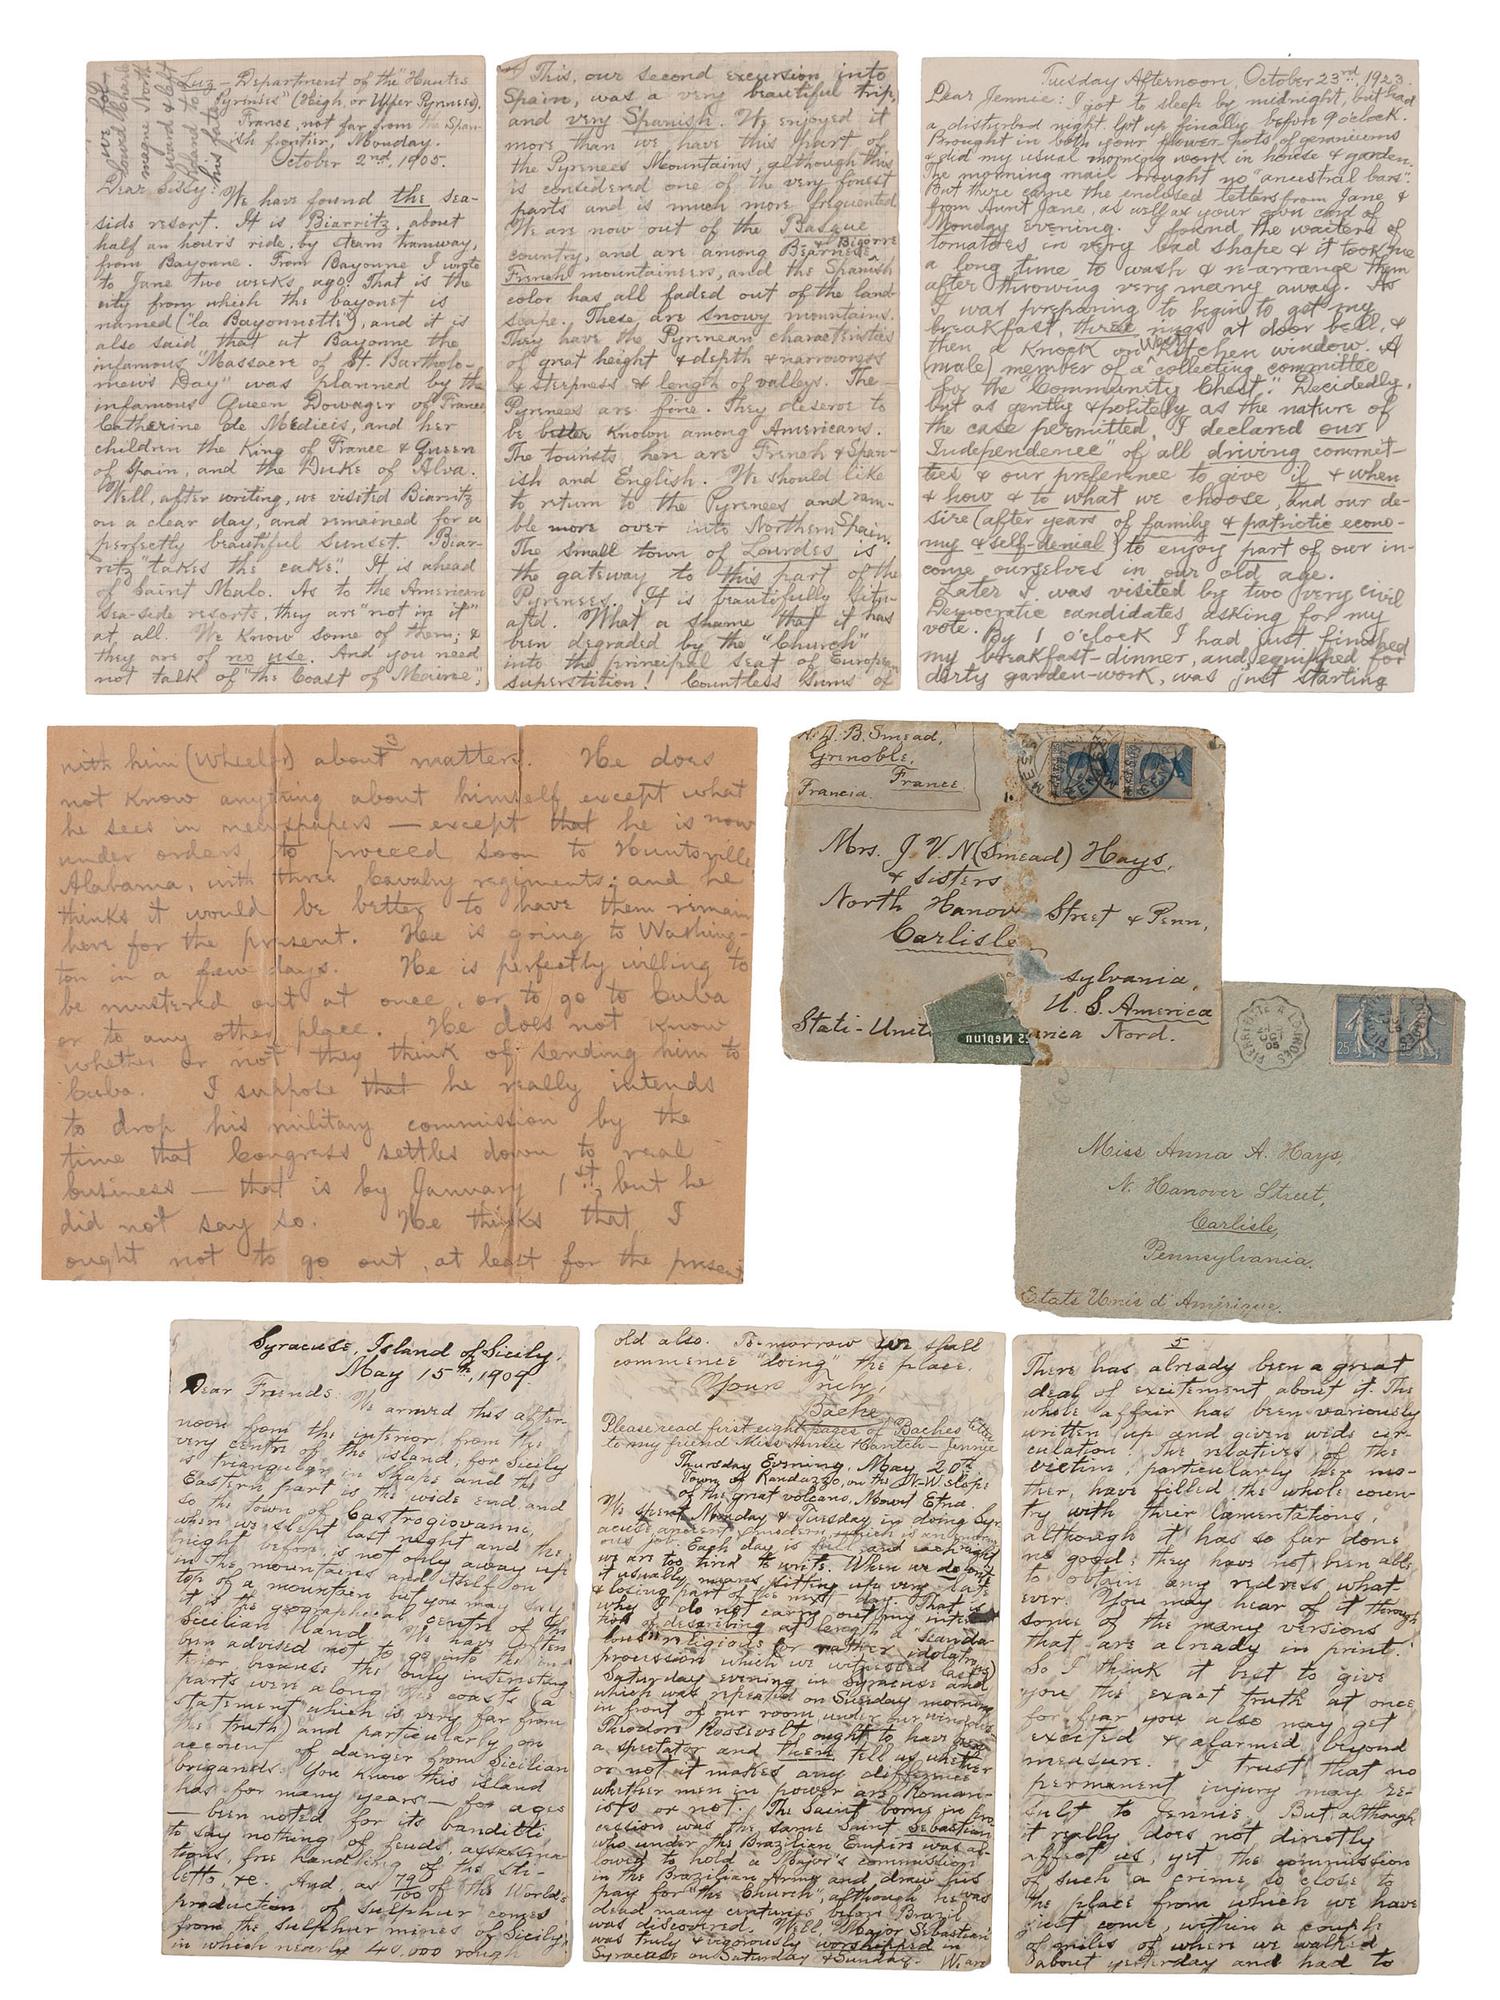 Luz – Department of the "Hautes
Pyrénées" (High, or Upper Pyrenees).
France, not far from the Span-
ish frontier, Monday.
October 2nd, 1905.
Dear Sissy: We have found the sea-
side resort. It is Biarritz, about
half an hour's ride, by steam tramway,
from Bayonne. From Bayonne I wrote
to Jane two weeks ago. That is the
city from which the bayonet is
named ("la Bayonnette"), and it is
also said that at Bayonne the
infamous "Massacre of St. Bartholo-
mew's Day" was planned by the
infamous Queen Dowager of France
Catherine de Medicis, and her
children the King of France & Queen
of Spain, and the Duke of Alva.
Well, after writing, we visited Biarritz
on a clear day, and remained for a
perfectly beautiful sunset. Biar-
ritz "takes the cake". It is ahead
of Saint Malo. As to the American
sea-side resorts, they are "not in it"
at all. We know some of them; &
they are of no use. And you need
not talk of "the Coast of Maine",
This, our second excursion into
Spain, was a very beautiful trip,
and very Spanish. We enjoyed it
more than we have this part of
the Pyrenees Mountains, although this
is considered one of the very finest
parts and is much more frequented.
We are now out of the Basque
country, and are among Bearnese & Bigorre
French mountaineers, and the Spanish
color has all faded out of the land-
scape. These are snowy mountains.
They have the Pyrenean characteristics
of great height & depth & narrowness
& steepness & length of valleys. The
Pyrenees are fine. They deserve to
be better known among Americans.
The tourists here are French & Span-
ish and English. We should like
to return to the Pyrenees and ram-
ble more over into Northern Spain.
The small town of Lourdes is
the gateway to this part of the
Pyrenees. It is beautifully situ-
ated. What a shame that it has
been degraded by the "Church"
into the principal seat of European
superstition! Countless sums of
Tuesday Afternoon, October 23rd, 1923.
Dear Jennie: I got to sleep by midnight, but had
a disturbed night. Got up finally before 9 o'clock.
Brought in both your flower pots of geraniums
& did my usual morning work in house & garden.
The morning mail brought no "ancestral bars".
But there came the enclosed letters from Jane &
from Aunt Jane, as well as your own card of
Monday evening. I found the waiters of
tomatoes in very bad shape & it took me
a long time to wash & re-arrange them
after throwing very many away. As
I was preparing to begin to get my
breakfast, three rings at door bell, &
then a knock on West kitchen window. A
(male) member of a collecting committee
for the "Community Chest". Decidedly,
but as gently & politely as the nature of
the case permitted, I declared our
Independence" of all driving commit-
tees & our preference to give if & when
& how & to what we choose, and our de-
sire (after years of family & patriotic econo-
my & self-denial) to enjoy part of our in-
come ourselves in our old age.
Later I was visited by two (very civil
Democratic candidates asking for my
vote. By 1 o'clock I had just finished
my breakfast-dinner, and, equipped for
dirty garden-work, was just starting
3
with him (Wheeler) about matters. He does
not know anything about himself except what
he sees in newspapers — except that he is now
under orders to proceed soon to Huntsville
Alabama, with three Cavalry regiments; and he
thinks it would be better to have them remain
here for the present. He is going to Washing-
ton in a few days. He is perfectly willing to
be mustered out at once, or to go to Cuba
or to any other place. He does not know
whether or not they think of sending him to
Cuba. I suppose that he really intends
to drop his military commission by the
time that Congress settles down to real
business — that is by January 1st, but he
did not say so. He thinks that I
ought not to go out, at least for the present
A. D. B. Smead,
Grenoble,
France.
Francia.
Mrs. J. V. N. (Smead) Hays,
& sisters
North Hanov Street & Penn,
Carlisle
sylvania,
U. S. America
Stati-Unit rica Nord.
Neptun
PIERREFITTE A LOURDES
25
Miss Anna A. Hays,
N. Hanover Street,
Carlisle,
Pennsylvania.
Etats Unis d'Amérique.
Syracuse, Island of Sicily,
May 15th, 1909.
Dear Friends: We arrived this after-
noon from the interior, from the
very centre of the island; for Sicily
is triangular in shape and the
Eastern part is the wide end, and
so the town of Castrogiovanni,
where we slept last night and the
night before is not only away up
in the mountains and itself on
top of a mountain but you may say
it is the geographical centre of the
Sicilian land. We have often
been advised not to go into the in-
terior because the only interesting
parts were along the coasts (a
statement which is very far from
the truth) and particularly on
account of danger from Sicilian
brigands. You know this island
has for many years — for ages
— been noted for its banditti
to say nothing of feuds, assassina-
tions, free handling of the sti-
letto, &c. And, as 790/100 of the World's
production of sulphur comes
from the sulphur mines of Sicily,
in which nearly 40,000 rough
old also. To-morrow we shall
commence "doing" the place.
Yours truly,
Bache.
Please read first eight pages of Baches letter
to my friend Miss Annie Hantch – Jennie
Thursday Evening, May 20th
Town of Randazzo, on the N-W. slope
of the great volcano, Mount Etna.
We spent Monday & Tuesday in doing Syr-
acuse, ancient & modern, which is an enorm-
ous job. Each day is full and each night
we are too tired to write. When we do write
it usually means sitting up very late
& losing part of the next day. That is
why I do not carry out my inten-
tion of describing at length a "scanda-
lous" religious (or rather idolatrous)
procession which we witnessed last
Saturday evening in Syracuse and
which was repeated on Sunday morning
in front of our room, under our windows.
Theodore Roosevelt ought to have been
a spectator and then tell us whether
or not it makes any difference
whether men in power are Roman-
ists or not. The Saint borne in pro-
cession was the same Saint Sebastian
who under the Brazilian Empire was al-
lowed to hold a Major's commission
in the Brazilian Army and draw his
pay for "the Church", although he was
dead many centuries before Brazil
was discovered. Well, Major Sebastian
was truly & vigorously worshipped in
Syracuse on Saturday & Sunday. We are
5
There has already been a great
deal of excitement about it. The
whole affair has been variously
written up and given wide cir-
culation. The relatives of the
victim, particularly her mo-
ther, have filled the whole coun-
try with their lamentations,
although it has so far done
no good; they have not been able
to obtain any redress what-
ever. You may hear of it through
some of the many versions
that are already in print.
So I think it best to give
you the exact truth at once
for fear you also may get
excited & alarmed beyond
measure. I trust that no
permanent injury may re-
sult to Jennie. But although
it really does not directly
affect us, yet the commission
of such a crime so close to
the place from which we have
just come, within a couple
of miles of where we walked
about yesterday and had to